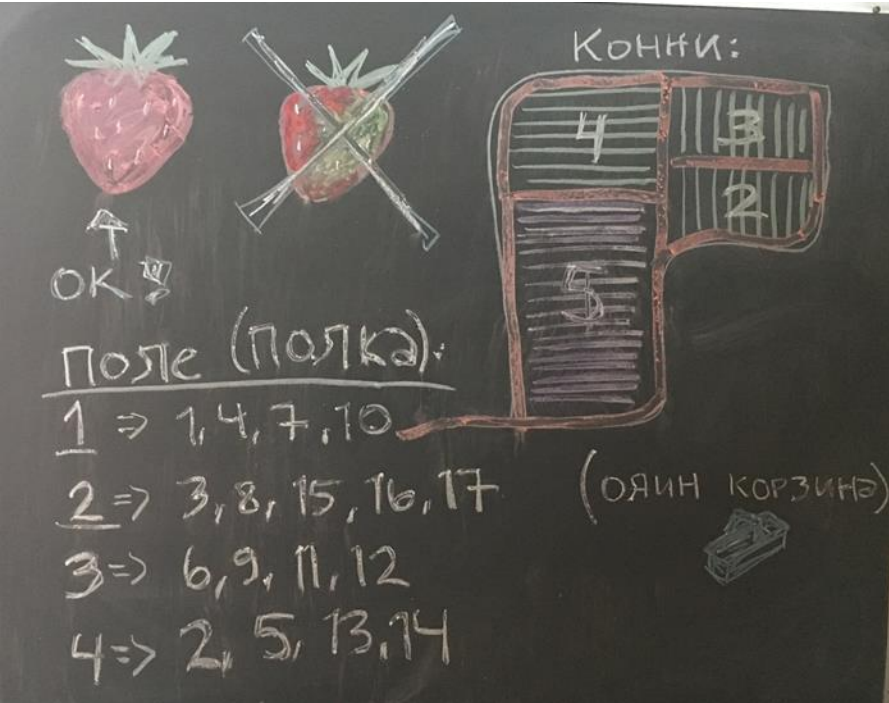 Конни:
4
3
2
5
ОК!
поле (полка):
1 => 1, 4, 7, 10
2 => 3, 8, 15, 16, 17
3 => 6, 9, 11, 12
4 => 2, 5, 13, 14
(ояин корзина)